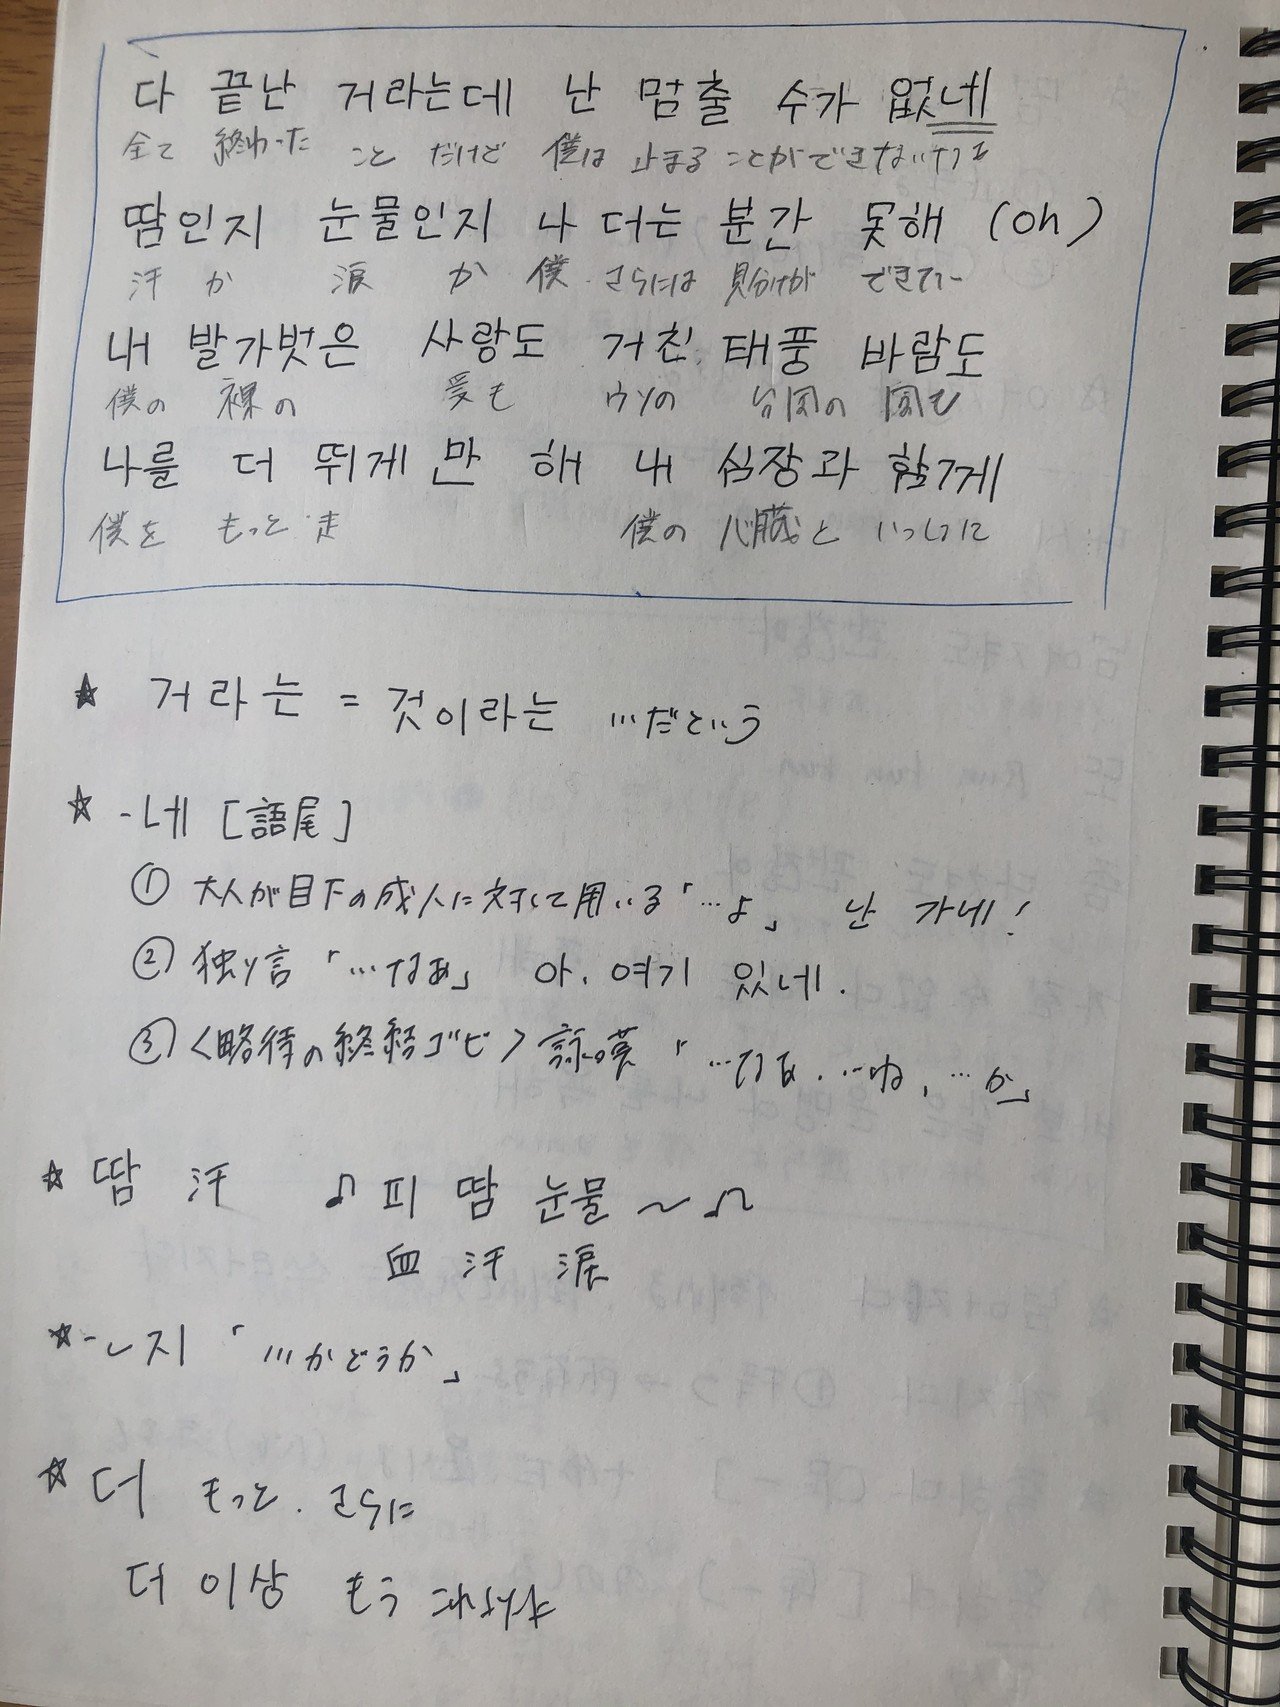 다 끝난 거라는데 난 멈출 수가 없네
全て 終わった こと だけど 僕は 止まる ことができない
땀인지 눈물인지 나 더는 분간 못해 (Oh)
汗 か 涙 か 僕 さらには 見分けが できてー
내 발가벗은 사랑도 거친 태풍 바람도
僕の 裸の 愛も ウソの 台風の 風も
나를 더 뛰게 만 해 내 심장과 함께
僕を もっと 走 僕の 心臓と いっしょに
★ 거라는 = 것이라는 …だという
☆ -네 [語尾]
① 大人が目下の成人に対して用いる「…よ」 난 가네!
② 独り言「…なぁ」 아, 여기 있네.
③ <略待の終結ゴビ> 詠嘆「…なぁ、…ね、…か」
☆ 땀 汗 ♪ 피 땀 눈물 ~ ♫
血 汗 涙
☆ -ㄴ지 「…かどうか」
☆ 더 もっと、さらに
더 이상 もう これ以上